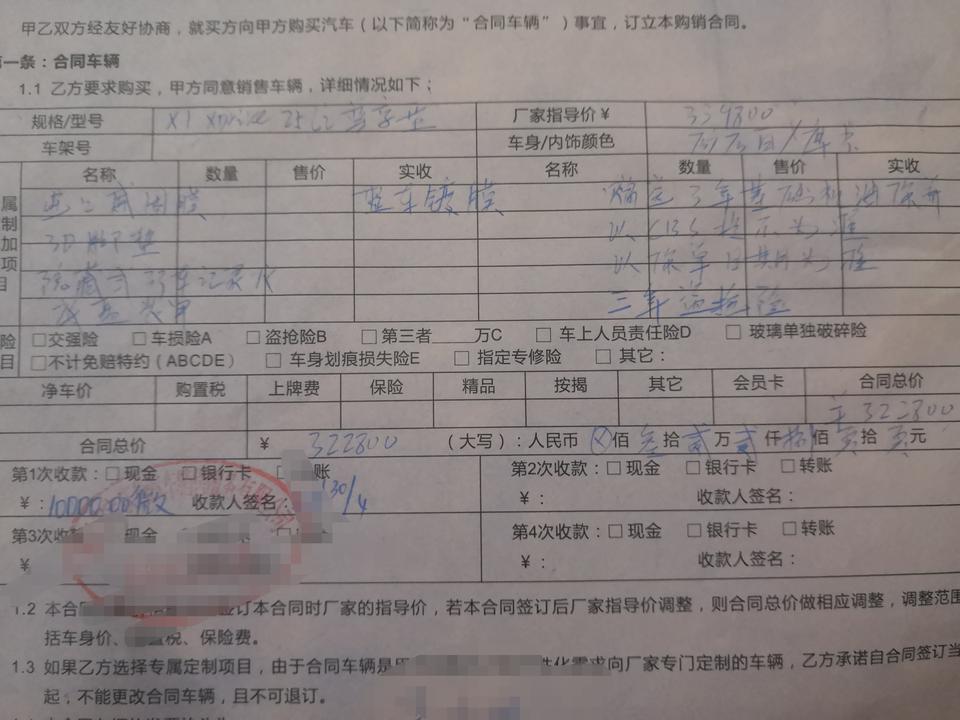 甲乙双方经友好协商，就买方向甲方购买汽车（以下简称为“合同车辆”）事宜，订立本购销合同。
一条：合同车辆
1.1 乙方要求购买，甲方同意销售车辆，详细情况如下；
规格/型号 X1 25Li 尊享型 厂家指导价￥ 339800
车架号 车身/内饰颜色 白/摩卡
名称 数量 售价 实收 名称 数量 售价 实收
属 威固膜 整车镀膜 赠送3年基础机油保养
制 3D脚垫 以CBS提示为准
加 以保单日期为准
项 隐藏式行车记录仪
目 底盘装甲 三年盗抢险
险 □交强险 □车损险A □盗抢险B □第三者 万C □车上人员责任险D □玻璃单独破碎险
目 □不计免赔特约（ABCDE） □车身划痕损失险E □指定专修险 □其它：
净车价 购置税 上牌费 保险 精品 按揭 其它 会员卡 合同总价
322800
合同总价 ￥ 322800 （大写）：人民币 佰 叁拾 贰万 贰仟 捌佰 零拾 零元
第1次收款：□现金 □银行卡 账 第2次收款：□现金 □银行卡 □转账
￥：10000.00 收款人签名： 30/4 ￥： 收款人签名：
第3次收 现金 第4次收款：□现金 □银行卡 □转账
￥ ￥： 收款人签名：
1.2 本合 签订本合同时厂家的指导价，若本合同签订后厂家指导价调整，则合同总价做相应调整，调整范围
括车身价、 置税、保险费。
1.3 如果乙方选择专属定制项目，由于合同车辆是 性化需求向厂家专门定制的车辆，乙方承诺自合同签订当
起，不能更改合同车辆，且不可退订。